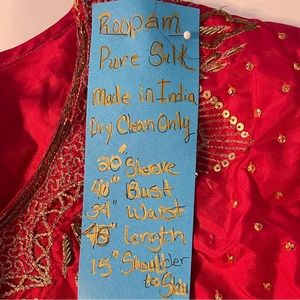 Roopam
Pure Silk
Made in India
Dry Clean Only
20" Sleeve
40" Bust
34" Waist
48" Length
15" Shoulder
to